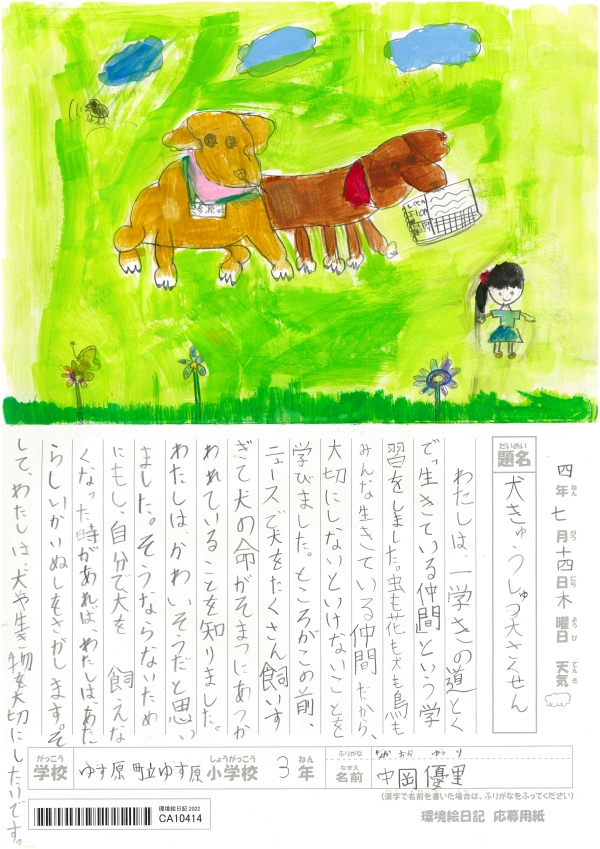 四年七月十四日木曜日 天気
ねん がつ にち よう び てん き
だいめい
題名
犬きゅうしゅつ大さくせん
わたしは、一学きの道とく
で「生きている仲間」という学
習をしました。虫も花も犬も鳥も
みんな生きている仲間だから、
大切にしないといけないことを
学びました。ところがこの前、
ニュースで犬をたくさん飼いす
ぎて犬の命がそまつにあつか
われていることを知りました。
わたしは、かわいそうだと思い
ました。そうならないため
にもし、自分で犬を飼えな
くなった時があれば、わたしは、あた
らしいかいぬしをさがします。そ
して、わたしは、犬や生き物を大切にしたいです。
がっこう
学校
ゆす原町立ゆす原
しょうがっこう
小学校
3
ねん
年
ふりがな
なか おか ゆう り
なまえ
名前
中岡優里
(漢字で名前を書いた場合は、ふりがなをふってください)
環境絵日記 2022
CA10414
環境絵日記 応募用紙